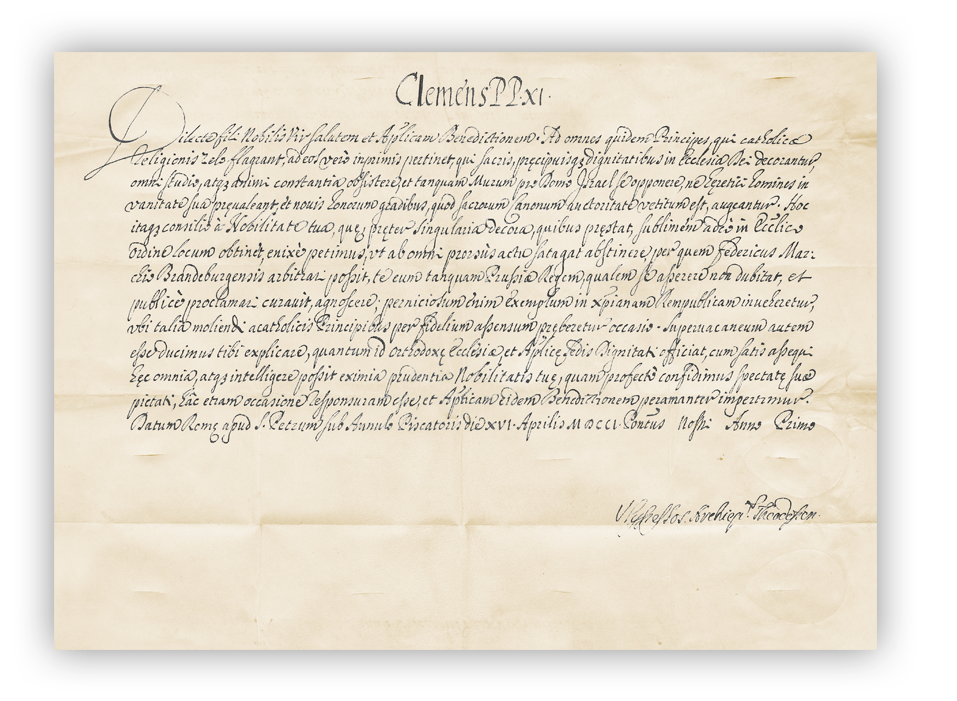 Clemens PP. XI.
Dilecte fili Nobilis Vir salutem et Aplicam Benedictionem. Ad omnes quidem Principes, qui catholicæ
Religionis zelo flagrant, ad eos verò inprimis pertinet, qui sacris, præcipuisq; dignitatibus in Ecclesia Dei decorantur,
omni studio, atq; animi constantia obsistere, et tanquam Murum pro Domo Israel se opponere, ne hæretici homines in
vanitate sua prevaleant, et nouis honorum gradibus, quod sacrorum Canonum auctoritate vetitum est, augeantur. Hoc
itaq; consilio à Nobilitate tua, quę pręter singularia decora, quibus prestat, sublimem adeò in Ecclico
ordine locum obtinet, enixè petimus, vt ab omni prorsus actu satagat abstinere, per quem Federicus Mar-
chio Brandeburgensis arbitrari possit, te eum tanquam Prussiæ Regem, qualem se asserere non dubitat, et
publicè proclamari curauit, agnoscere; perniciosum enim exemplum in xpianam Rempublicam inueheretur,
vbi talia moliendi acatholicis Principibus per fidelium assensum pręberetur occasio. Superuacaneum autem
esse ducimus tibi explicare, quantum id orthodoxę Ecclesiæ, et Aplicę Sedis Dignitati officiat, cum satis assequi
hęc omnia, atq; intelligere possit eximia prudentia Nobilitatis tuę, quam profectò confidimus spectatę suæ
pietati, hac etiam occasione responsuram esse, et Aplicam eidem Benedictionem peramanter impertimur.
Datum Romę apud S. Petrum sub Annulo Piscatoris die XVI. Aprilis MDCCI. Pontus Nostri Anno Primo